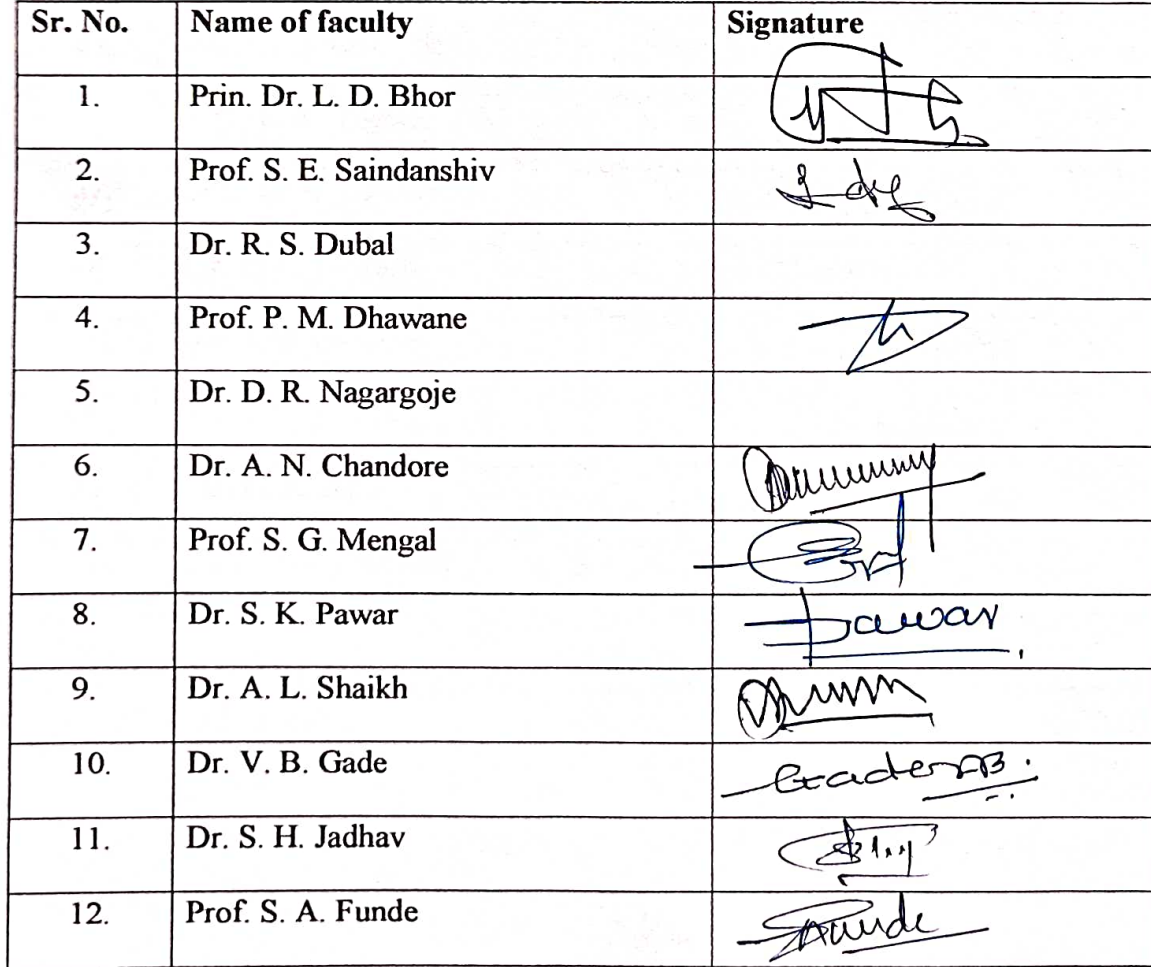 Sr. No. Name of faculty Signature
1. Prin. Dr. L. D. Bhor
2. Prof. S. E. Saindanshiv
3. Dr. R. S. Dubal
4. Prof. P. M. Dhawane
5. Dr. D. R. Nagargoje
6. Dr. A. N. Chandore
7. Prof. S. G. Mengal
8. Dr. S. K. Pawar Pawar
9. Dr. A. L. Shaikh
10. Dr. V. B. Gade
11. Dr. S. H. Jadhav
12. Prof. S. A. Funde